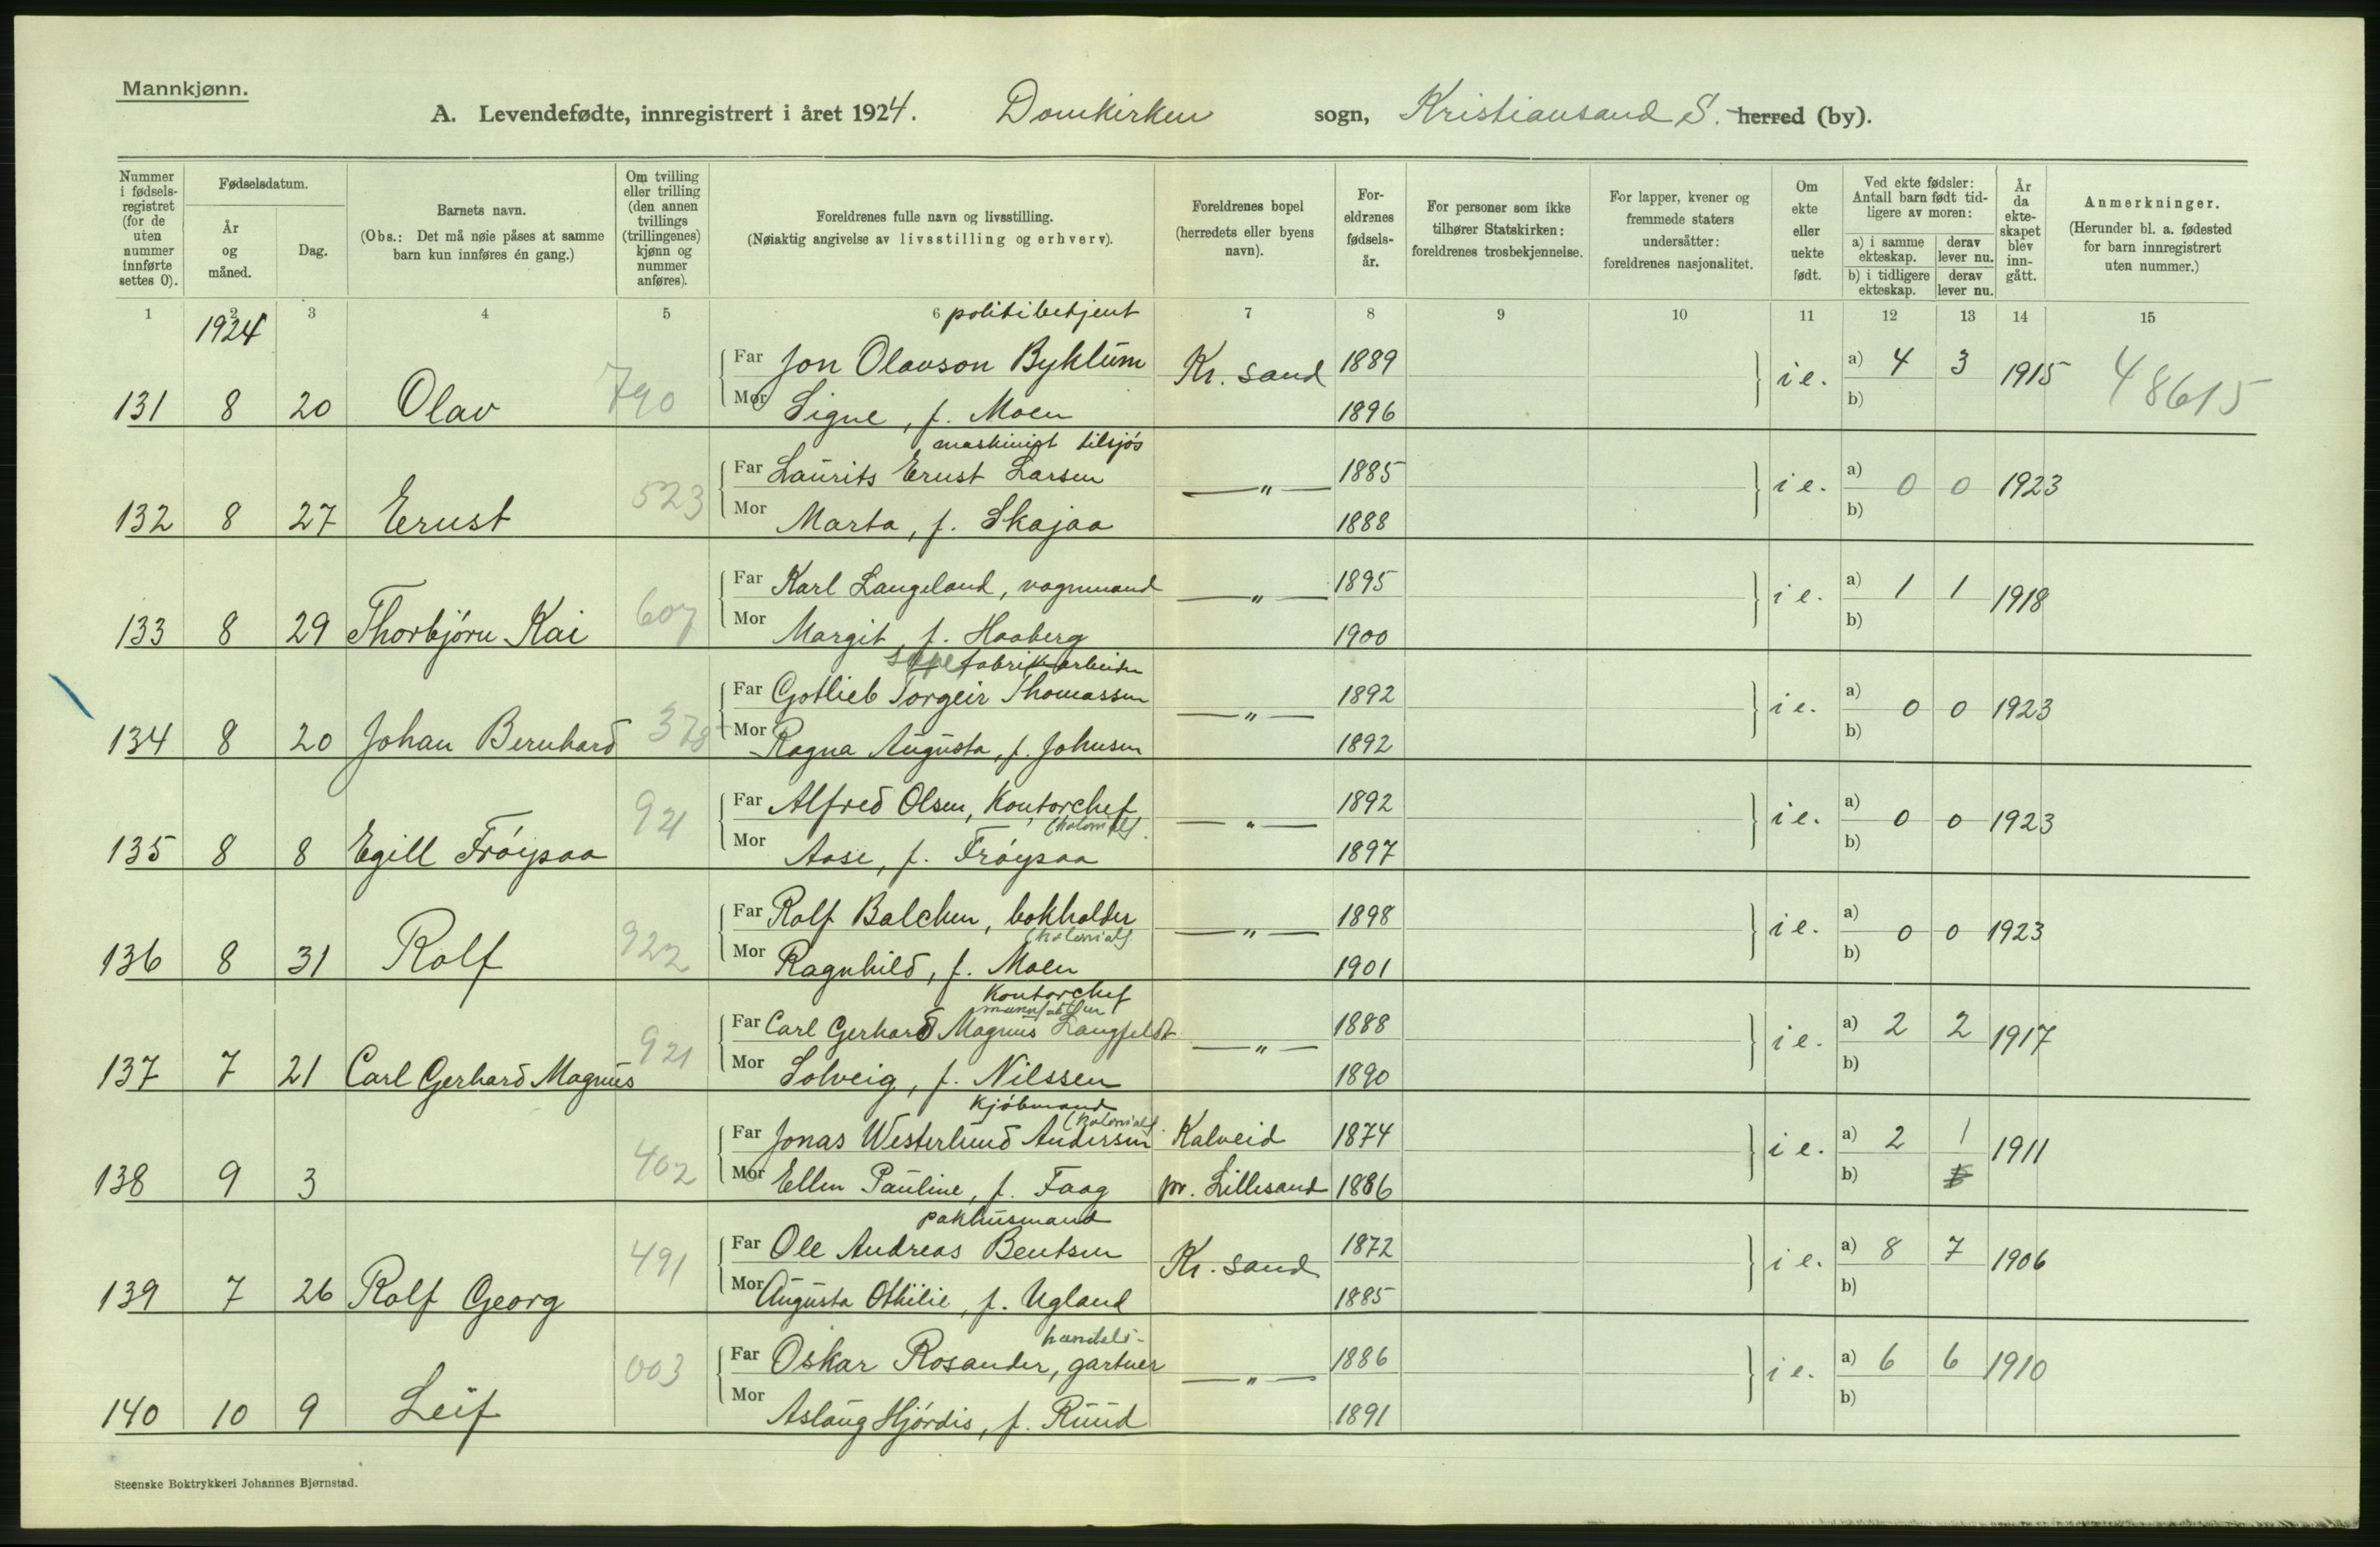 Mannkjønn.
A. Levendefødte, innregistrert i året 1924. Domkirken sogn, Kristiansand S. herred (by).
Nummer i fødsels-registret (for de uten nummer innførte settes 0).
Fødselsdatum.
År og måned.
Dag.
Barnets navn.
(Obs.: Det må nøie påses at samme barn kun innføres én gang.)
Om tvilling eller trilling (den annen tvillings (trillingenes) kjønn og nummer anføres).
Foreldrenes fulle navn og livsstilling.
(Nøiaktig angivelse av livsstilling og erhverv).
Foreldrenes bopel (herredets eller byens navn).
For-eldrenes fødsels-år.
For personer som ikke tilhører Statskirken: foreldrenes trosbekjennelse.
For lapper, kvener og fremmede staters undersåtter: foreldrenes nasjonalitet.
Om ekte eller uekte født.
Ved ekte fødsler: Antall barn født tid-ligere av moren:
a) i samme ekteskap. derav lever nu.
b) i tidligere ekteskap. derav lever nu.
År da ekte-skapet blev inn-gått.
Anmerkninger.
(Herunder bl. a. fødested for barn innregistrert uten nummer.)
1 2 3 4 5 6 7 8 9 10 11 12 13 14 15
1924
politibetjent
Far Jon Olavson Byklum Kr. sand 1889 a) 4 3
131 8 20 Olav 790 Mor Signe, f. Moen 1896 i e. b) 1915 48615
maskinist tilsjøs
Far Laurits Ernst Larsen —"— 1885 a) 0 0
132 8 27 Ernst 523 Mor Marta, f. Skajaa 1888 i e. b) 1923
Far Karl Langeland, vognmand —"— 1895 a) 1 1
133 8 29 Thorbjørn Kai 607 Mor Margit, f. Haaberg 1900 i e. b) 1918
fabrikarbeider
Far Gotlieb Torgeir Thomassen —"— 1892 a) 0 0
134 8 20 Johan Bernhard 378 Mor Ragna Augusta, f. Johnsen 1892 i e. b) 1923
Far Alfred Olsen, Kontorchef —"— 1892 a) 0 0
(kolonial)
135 8 8 Egill Frøysaa 921 Mor Aase, f. Frøysaa 1897 i e. b) 1923
Far Rolf Balchen, bokholder —"— 1898 a) 0 0
(kolonial)
136 8 31 Rolf 922 Mor Ragnhild, f. Moen 1901 i e. b) 1923
Kontorchef
manufaktur
Far Carl Gerhard Magnus Langfeldt —"— 1888 a) 2 2
137 7 21 Carl Gerhard Magnus 921 Mor Solveig, f. Nilssen 1890 i e. b) 1917
Kjøbmand
(kolonial)
Far Jonas Westerlund Anderssen Kalveid 1874 a) 2 1
138 9 3 402 Mor Ellen Pauline, f. Faag pr. Lillesand 1886 i e. b) 1911
pakhusmand
Far Ole Andreas Bentsen Kr. sand 1872 a) 8 7
139 7 26 Rolf Georg 491 Mor Augusta Othilie, f. Ugland 1885 i e. b) 1906
handels-
Far Oskar Rosander, gartner —"— 1886 a) 6 6
140 10 9 Leif 003 Mor Aslaug Hjørdis, f. Ruud 1891 i e. b) 1910
Steenske Boktrykkeri Johannes Bjørnstad.